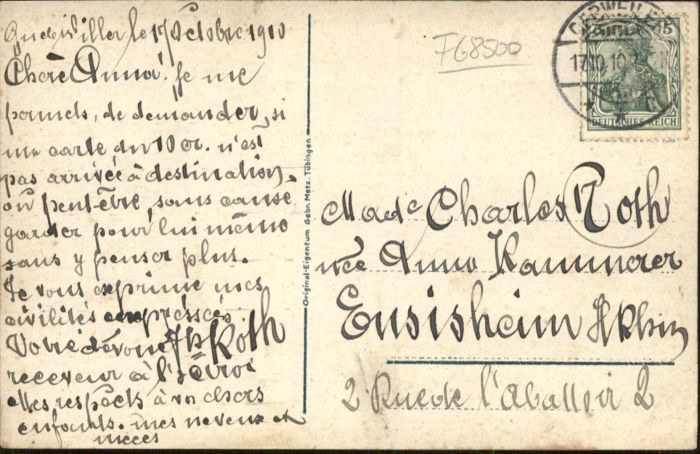 Guebwiller le 17 Octobre 1910
Chère Anna! Je me
permets, de demander, si
ma carte du 10 cr. n'est
pas arrivée à destination,
ou peut-être, sans cause
garder pour lui même
sans y penser plus.
Je vous exprime mes
civilités empressées.
Votre dévoué Jh Roth
receveur à l'
Mes respects à vos chers
enfants. mes neveux et
nieces
Original-Eigentum Gebr. Metz. Tübingen
F68500
GEBWEILER
17.10.10
5
DEUTSCHES REICH
Made Charles Roth
née Anna Kammerer
Ensisheim H/Rhin
2 Rue de l'Abattoir 2